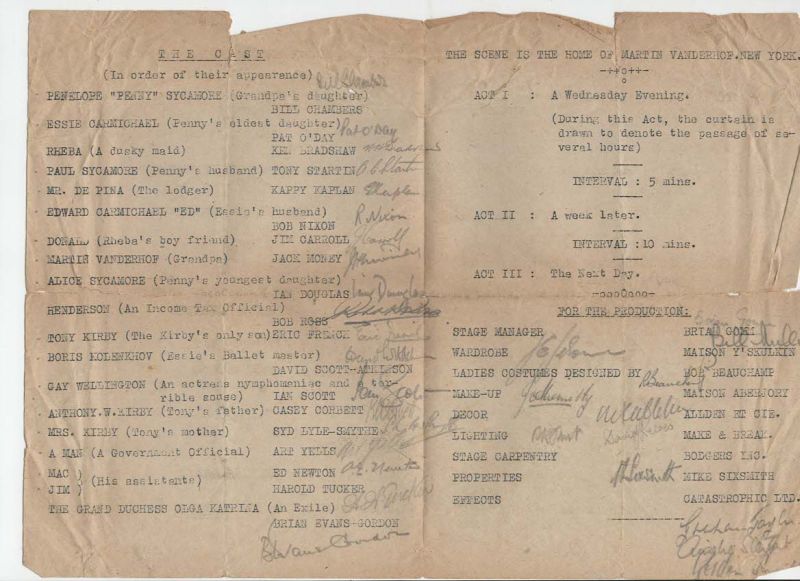 THE CAST
(In order of their appearence)
Bill Chambers
PENELOPE "PENNY" SYCAMORE (Grandpa's daughter)
BILL CHAMBERS
ESSIE CARMICHAEL (Penny's eldest daughter)
PAT O'DAY Pat O'Day
RHEBA (A dusky maid) KEN BRADSHAW
PAUL SYCAMORE (Penny's husband) TONY STARTIN
MR. DE PINA (The lodger) KAPPY KAPLAN
EDWARD CARMICHAEL "ED" (Essie's husband)
BOB NIXON R. Nixon
DONALD (Rheba's boy friend) JIM CARROLL
MARTIN VANDERHOF (Grandpa) JACK MONEY
ALICE SYCAMORE (Penny's youngest daughter)
IAN DOUGLAS Ian Douglas
HENDERSON (An Income Tax Official)
BOB ROSS
TONY KIRBY (The Kirby's only son) ERIC FRENCH
BORIS KOLENKHOV (Essie's Ballet master)
DAVID SCOTT-ATKINSON
GAY WELLINGTON (An actress nymphomaniac and a ter-
rible souse) IAN SCOTT
ANTHONY.W.KIRBY (Tony's father) CASEY CORBETT
MRS. KIRBY (Tony's mother) SYD LYLE-SMYTHE
A MAN (A Government Official) ART YELLS
MAC ) ED NEWTON
(His assistants)
JIM ) HAROLD TUCKER
THE GRAND DUCHESS OLGA KATRINA (An Exile)
BRIAN EVANS-GORDON
B Evans Gordon
THE SCENE IS THE HOME OF MARTIN VANDERHOF.NEW YORK.
ACT I : A Wednesday Evening.
(During this Act, the curtain is
drawn to denote the passage of se-
veral hours)
INTERVAL : 5 mins.
ACT II : A week later.
INTERVAL :10 mins.
ACT III : The Next Day.
FOR THE PRODUCTION:
STAGE MANAGER BRIAN GOMI
WARDROBE MAISON Y'SKULKIN
LADIES COSTUMES DESIGNED BY BOB BEAUCHAMP
MAKE-UP MAISON ABERJORY
DECOR ALLDEN ET CIE.
LIGHTING MAKE & BREAK.
STAGE CARPENTRY BODGERS INC.
PROPERTIES MIKE SIXSMITH
EFFECTS CATASTROPHIC LTD.